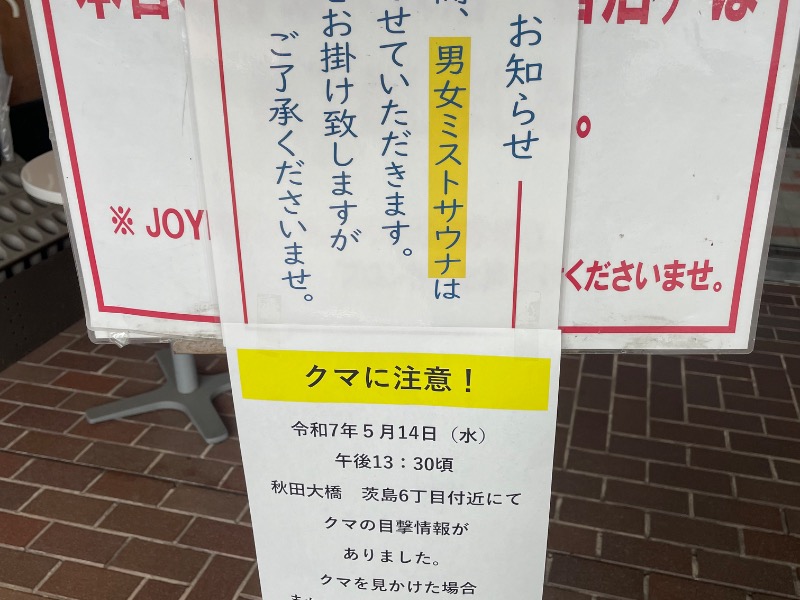 お知らせ
男女ミストサウナは
せていただきます。
お掛け致しますが
ご了承くださいませ。
※ JOY
くださいませ。
クマに注意！
令和7年５月14日（水）
午後13：30頃
秋田大橋　茨島6丁目付近にて
クマの目撃情報が
ありました。
クマを見かけた場合